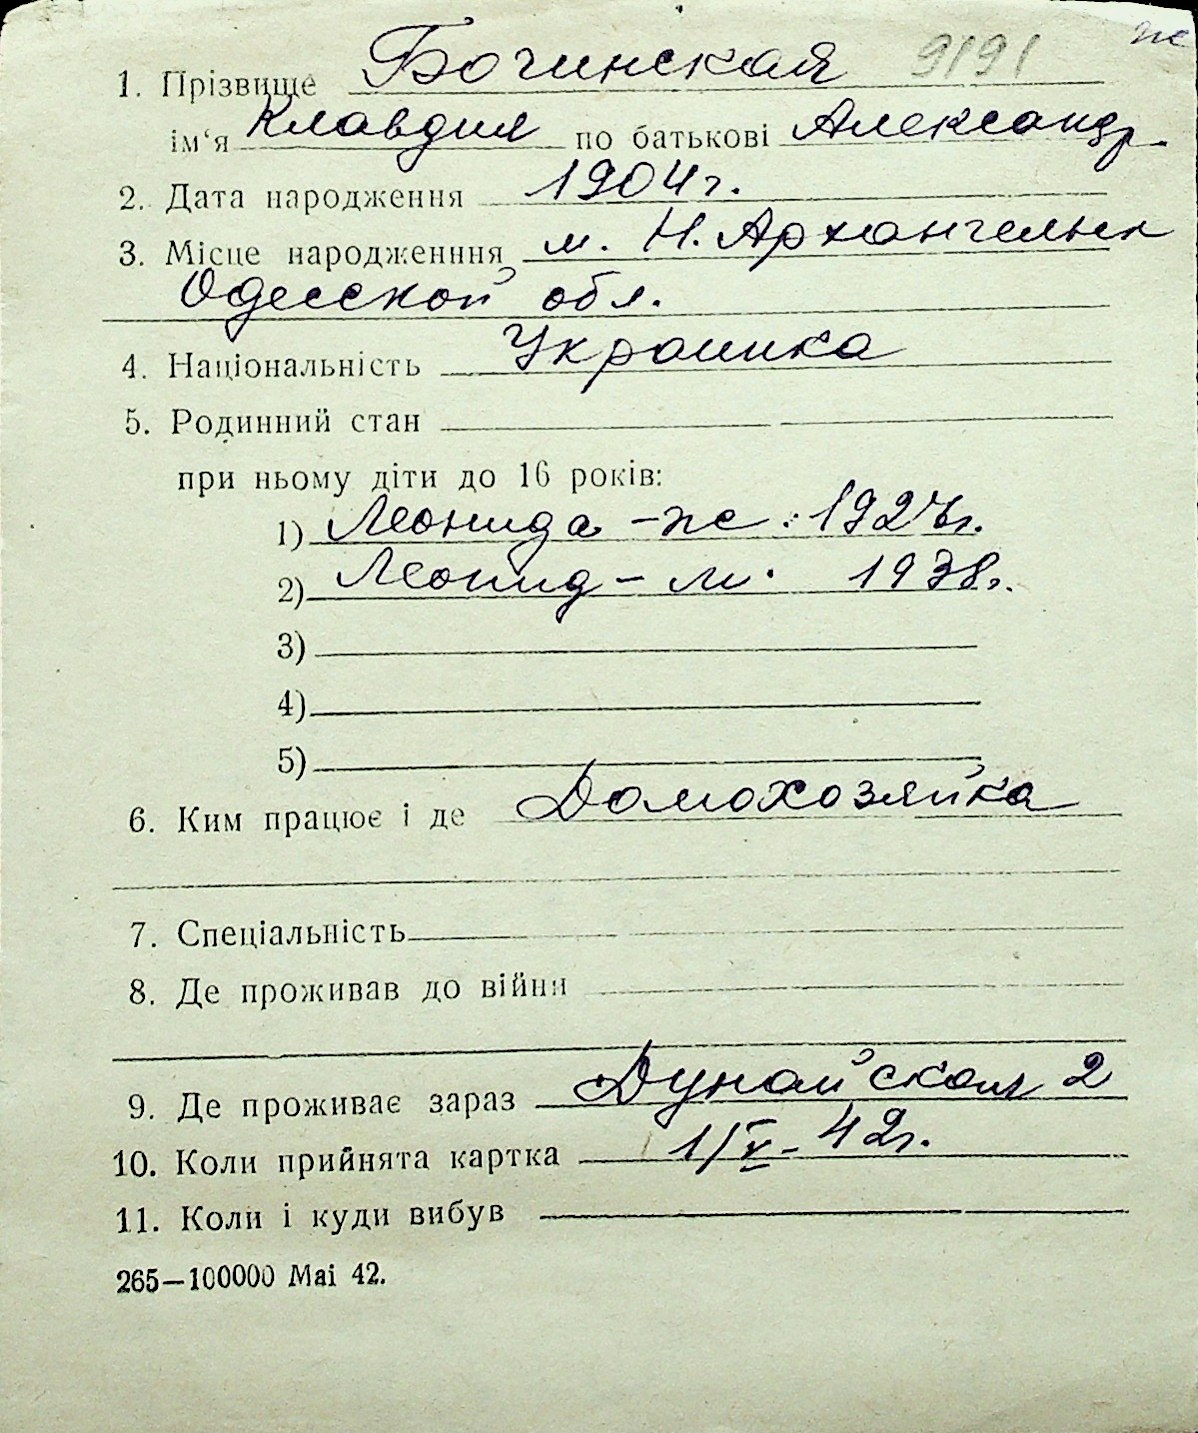 ж
1. Прізвище Бочинская 9191
ім‘я Клавдия по батькові Александр.
2. Дата народження 1904 г.
3. Місце народженння м. Н. Архангельск
Одесской обл.
4. Національність Украинка
5. Родинний стан
при ньому діти до 16 років:
1) Леонида - ж. 1927г.
2) Леонид - м. 1938г.
3)
4)
5)
6. Ким працює і де Домохозяйка
7. Спеціальність
8. Де проживав до війни
9. Де проживає зараз Дунайская 2
10. Коли прийнята картка 1/V - 42г.
11. Коли і куди вибув
265—100000 Mai 42.